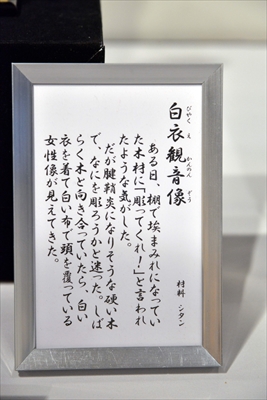 白衣観音像
びやくえ かんのん ぞう
材料 シタン
ある日、棚で埃まみれになってい
た木材に「彫ってくれ!」と言われ
たような気がした。
だが腱鞘炎になりそうな硬い木
で、なにを彫ろうかと迷った。しば
らく木と向き合っていたら、白い
衣を着て白い布で頭を覆っている
女性像が見えてきた。